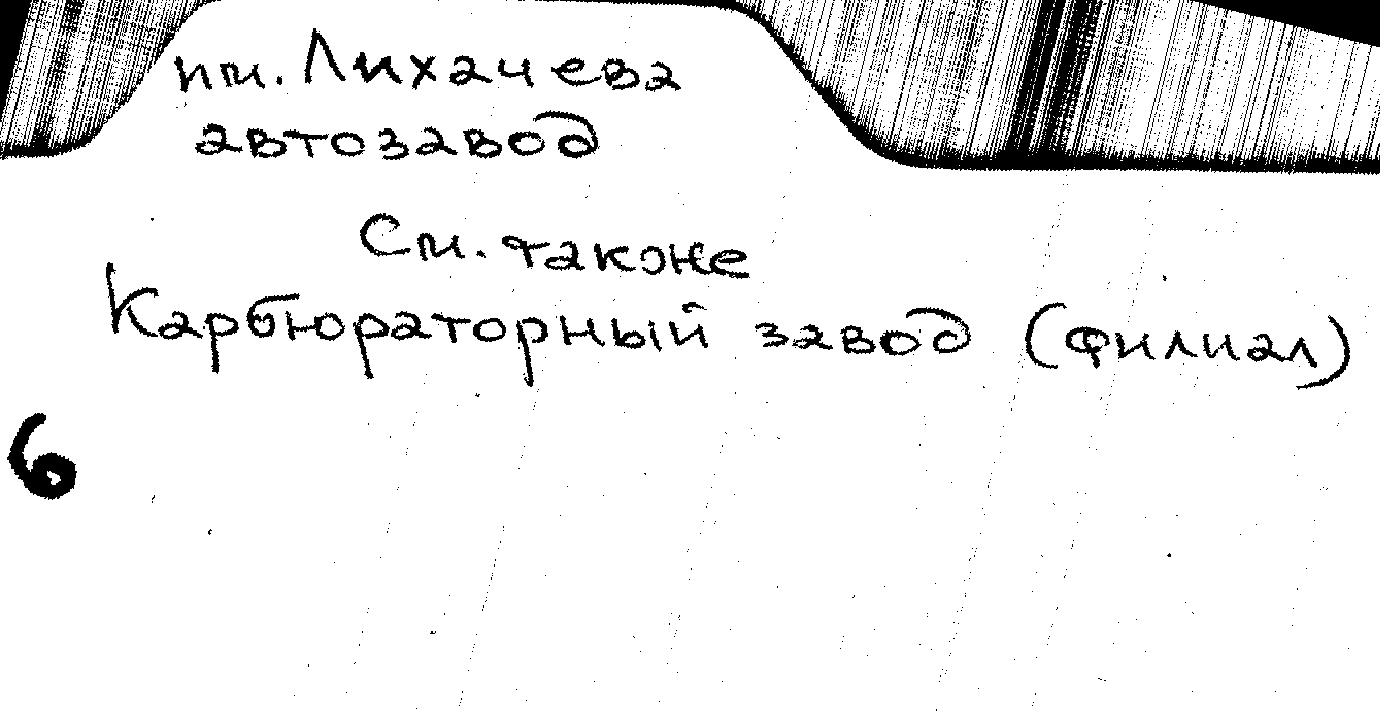 им. Лихачева
автозавод
См. также
Карбюраторный завод (филиал)
6